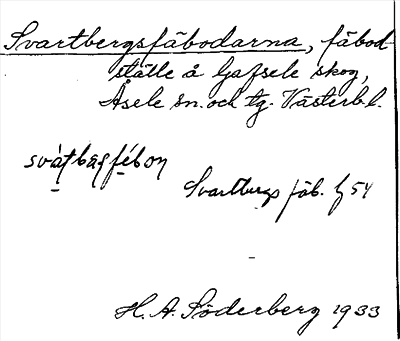 Svartbergsfäbodarna, fäbod-
ställe å Gafsele skog,
Åsele sn. och tg. Västerb. l.
Svartbergs fäb. 54
H. A. Söderberg 1933